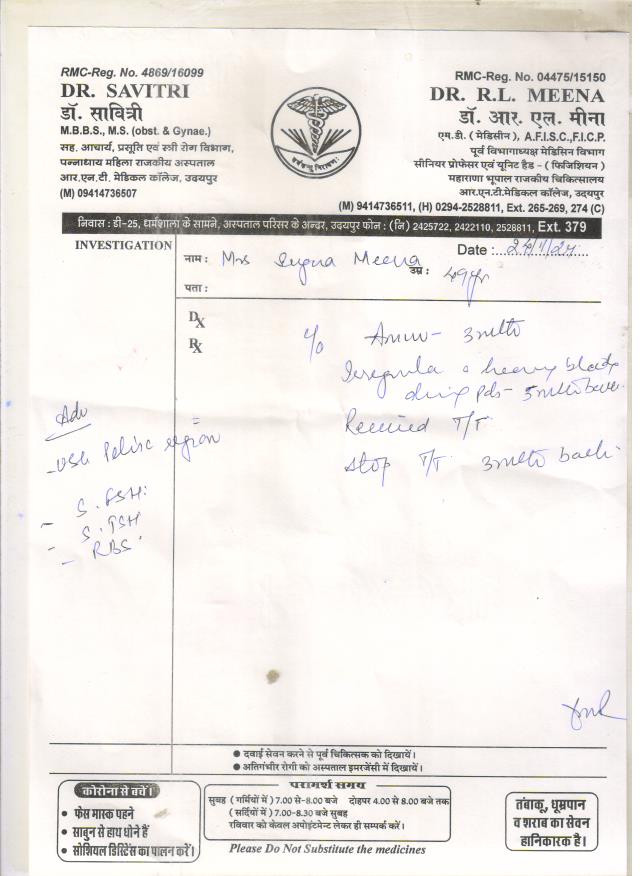 RMC-Reg. No. 4869/16099
DR. SAVITRI
डॉ. सावित्री
M.B.B.S., M.S. (obst. & Gynae.)
सह. आचार्य, प्रसूति एवं स्त्री रोग विभाग,
पन्नाधाय महिला राजकीय अस्पताल
आर.एन.टी. मेडिकल कॉलेज, उदयपुर
(M) 09414736507
RMC-Reg. No. 04475/15150
DR. R.L. MEENA
डॉ. आर. एल. मीना
एम.डी. ( मेडिसीन ), A.F.I.S.C.,F.I.C.P.
पूर्व विभागाध्यक्ष मेडिसिन विभाग
सीनियर प्रोफेसर एवं यूनिट हैड - ( फिजिशियन )
महाराणा भूपाल राजकीय चिकित्सालय
आर.एन.टी.मेडिकल कॉलेज, उदयपुर
(M) 9414736511, (H) 0294-2528811, Ext. 265-269, 274 (C)
निवास : डी-25, धर्मशाला के सामने, अस्पताल परिसर के अन्दर, उदयपुर फोन : (नि) 2425722, 2422110, 2528811, Ext. 379
INVESTIGATION
Date :
नाम : Mrs Meena
उम्र : 49yr
पता :
Dx
Rx
c/o 3mths
Irregular heavy bleeding
during pds-
Received T/T
Stop T/T 3mths back
Adv
- USG Pelvic region
- S. FSH
- S. TSH
- RBS
● दवाई सेवन करने से पूर्व चिकित्सक को दिखायें।
● अतिगंभीर रोगी को अस्पताल इमरजेंसी में दिखायें।
कोरोना से बचें।
● फेस मास्क पहने
● साबुन से हाथ धोने हैं
● सोशियल डिस्टेंस का पालन करें।
परामर्श समय
सुबह ( गर्मियों में ) 7.00 से-8.00 बजे दोहपर 4.00 से 8.00 बजे तक
( सर्दियों में ) 7.00-8.30 बजे सुबह
रविवार को केवल अपोइंटमेन्ट लेकर ही सम्पर्क करें।
Please Do Not Substitute the medicines
तंबाकू, धूम्रपान
व शराब का सेवन
हानिकारक है।